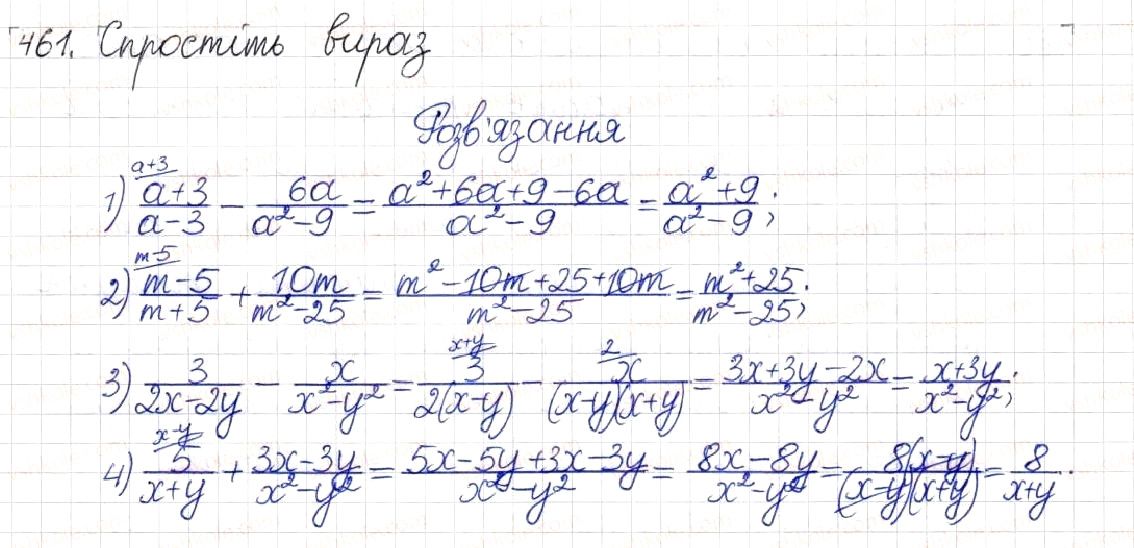 461. Спростіть вираз
Розв'язання
1) \frac{a+3}{a-3}^{a+3} - \frac{6a}{a^2-9} = \frac{a^2+6a+9-6a}{a^2-9} = \frac{a^2+9}{a^2-9};
2) \frac{m-5}{m+5}^{m-5} + \frac{10m}{m^2-25} = \frac{m^2-10m+25+10m}{m^2-25} = \frac{m^2+25}{m^2-25};
3) \frac{3}{2x-2y} - \frac{x}{x^2-y^2} = \frac{3}{2(x-y)}^{x+y} - \frac{x}{(x-y)(x+y)}^{2} = \frac{3x+3y-2x}{x^2-y^2} = \frac{x+3y}{x^2-y^2};
4) \frac{5}{x+y}^{x-y} + \frac{3x-3y}{x^2-y^2} = \frac{5x-5y+3x-3y}{x^2-y^2} = \frac{8x-8y}{x^2-y^2} = \frac{8(x-y)}{(x-y)(x+y)} = \frac{8}{x+y}.